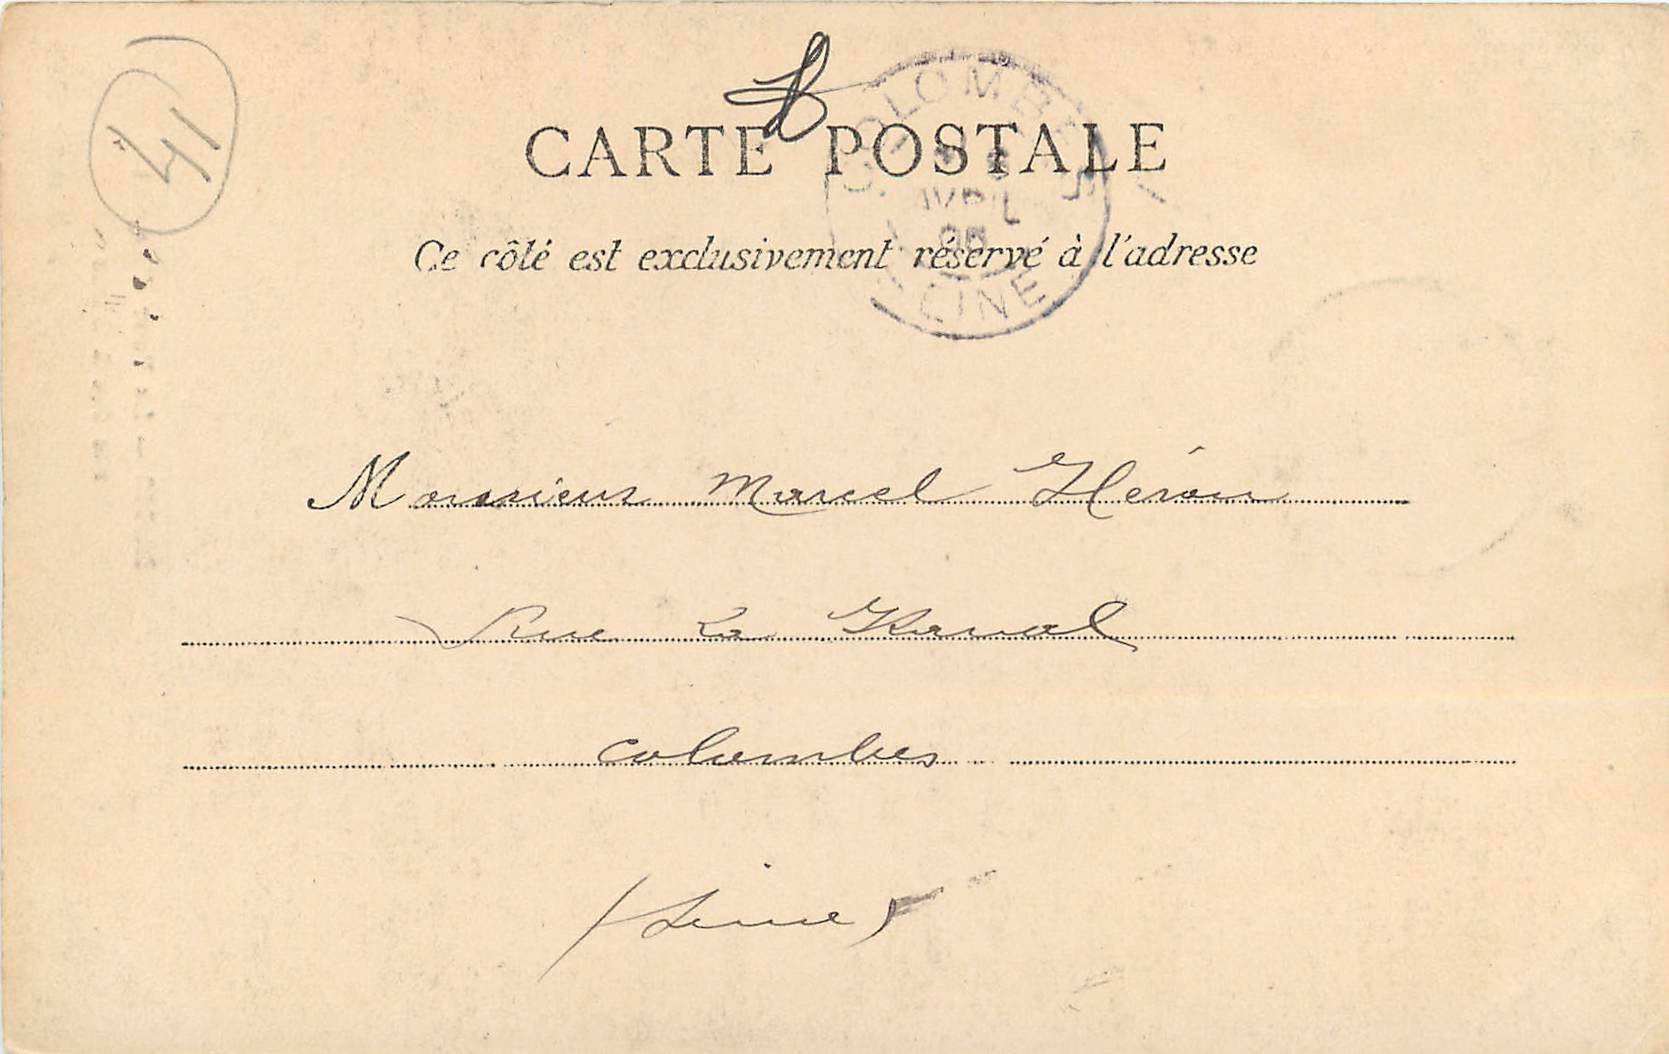 41
CARTE POSTALE
COLOMBES
AVRIL
SEINE
Ce côté est exclusivement réservé à l'adresse
Monsieur Marcel Héron
Rue La
Colombes
(Seine)